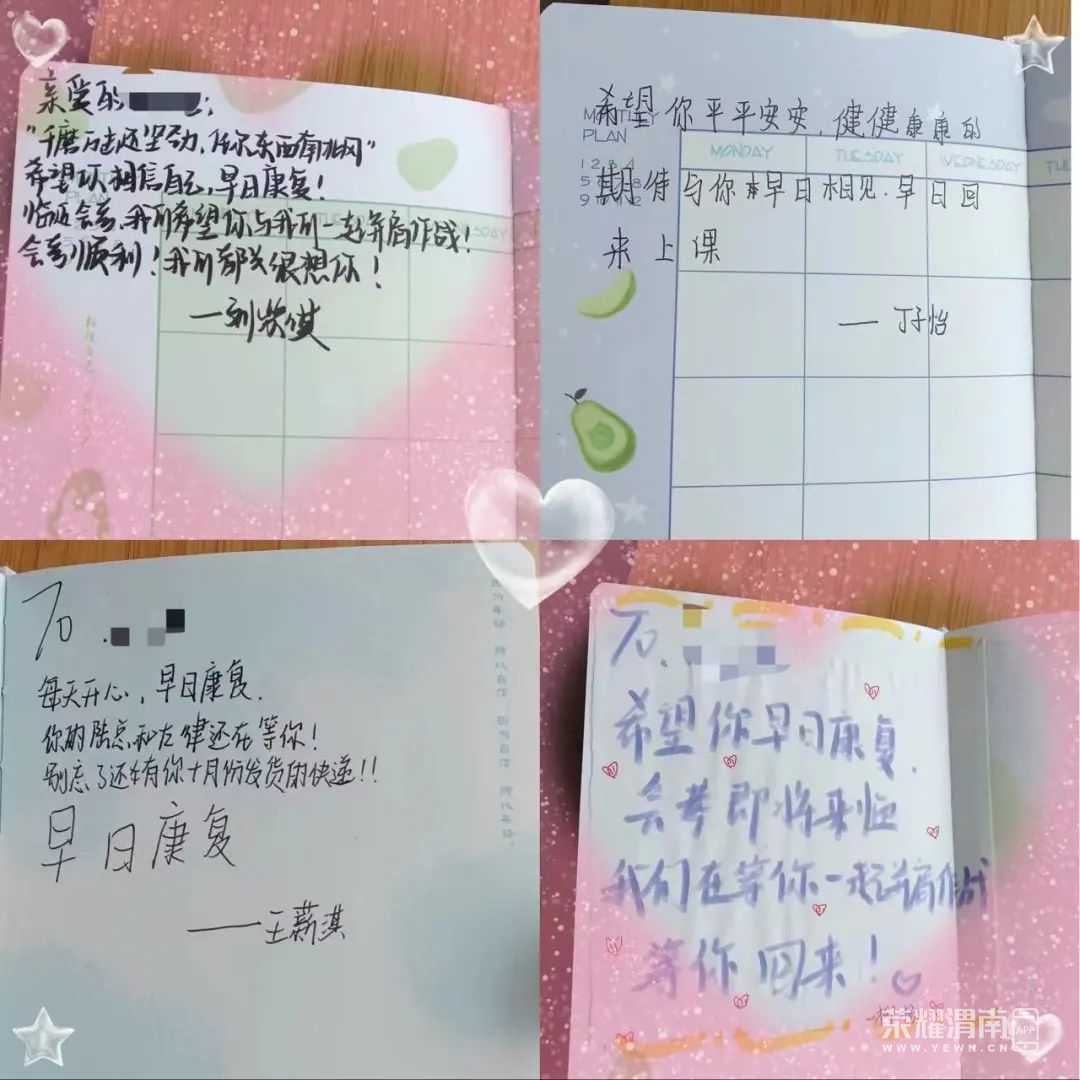 亲爱的
"千磨万击还坚劲,任尔东西南北风"
希望你相信自己,早日康复!
临近会考,我们希望你与我们一起并肩作战!
会考顺利!我们都很想你!
MONTHLY
PLAN
希望你平平安安,健健康康的
MONDAY TUESDAY WEDNESDAY
期待与你早日相见.早日回
来上课
——丁子怡
To.
每天开心,早日康复.
你的陆总和左律还在等你!
别忘了还有你十月份发货的快递!!
早日康复
——王薪淇
To.
希望你早日康复.
会考即将来临
我们在等你一起并肩作战
等你回来!
荣耀渭南APP
WWW.YEWN.CN